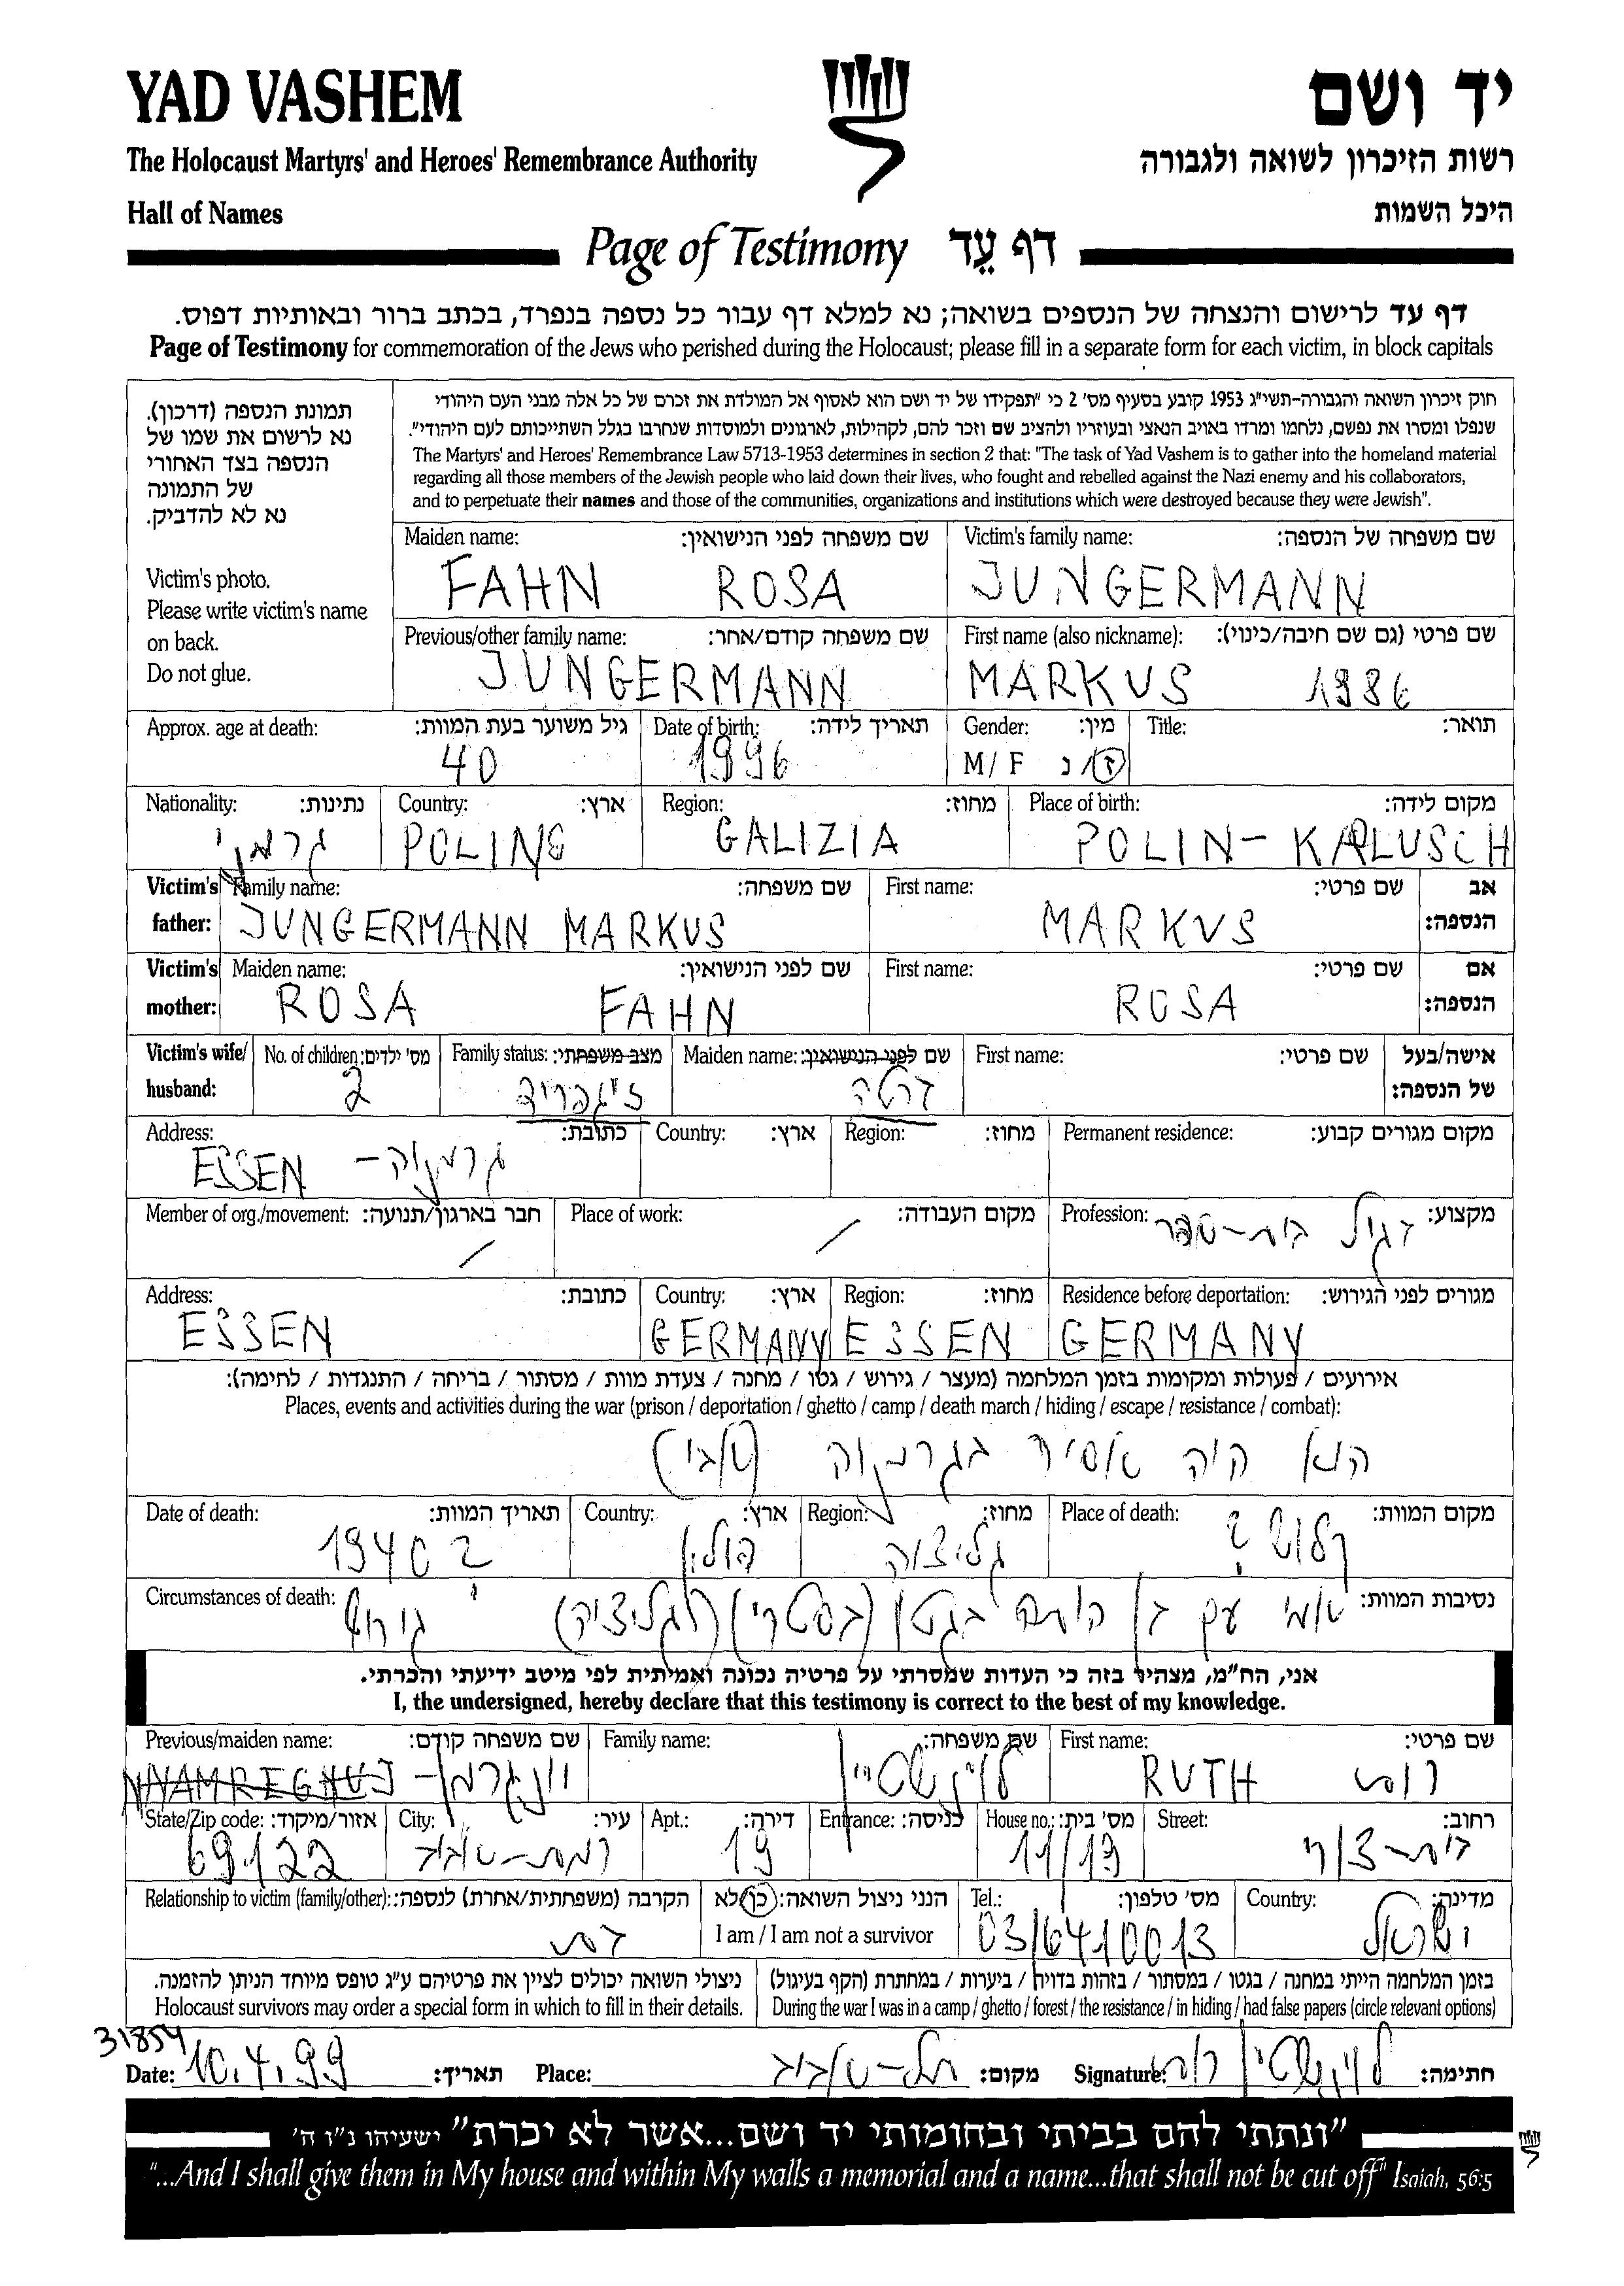 YAD VASHEM יד ושם
The Holocaust Martyrs' and Heroes' Remembrance Authority רשות הזיכרון לשואה ולגבורה
Hall of Names היכל השמות
Page of Testimony דף עֵד
דף עד לרישום והנצחה של הנספים בשואה; נא למלא דף עבור כל נספה בנפרד, בכתב ברור ובאותיות דפוס.
Page of Testimony for commemoration of the Jews who perished during the Holocaust; please fill in a separate form for each victim, in block capitals
תמונת הנספה (דרכון).
נא לרשום את שמו של
הנספה בצד האחורי
של התמונה
נא לא להדביק.
Victim's photo.
Please write victim's name
on back.
Do not glue.
חוק זיכרון השואה והגבורה-תשי"ג 1953 קובע בסעיף מס' 2 כי "תפקידו של יד ושם הוא לאסוף אל המולדת את זכרם של כל אלה מבני העם היהודי
שנפלו ומסרו את נפשם, נלחמו ומרדו באויב הנאצי ובעוזריו ולהציב שם וזכר להם, לקהילות, לארגונים ולמוסדות שנחרבו בגלל השתייכותם לעם היהודי".
The Martyrs' and Heroes' Remembrance Law 5713-1953 determines in section 2 that: "The task of Yad Vashem is to gather into the homeland material
regarding all those members of the Jewish people who laid down their lives, who fought and rebelled against the Nazi enemy and his collaborators,
and to perpetuate their names and those of the communities, organizations and institutions which were destroyed because they were Jewish".
Maiden name: שם משפחה לפני הנישואין: Victim's family name: שם משפחה של הנספה:
FAHN ROSA JUNGERMANN
Previous/other family name: שם משפחה קודם/אחר: First name (also nickname): שם פרטי (גם שם חיבה/כינוי):
JUNGERMANN MARKUS 1986
Approx. age at death: גיל משוער בעת המוות: Date of birth: תאריך לידה: Gender: מין: Title: תואר:
40 1996 M/F ז/נ
Nationality: נתינות: Country: ארץ: Region: מחוז: Place of birth: מקום לידה:
גרמני POLING GALIZIA POLIN- KALUSCH
Victim's father: Family name: שם משפחה: First name: שם פרטי: אב הנספה:
JUNGERMANN MARKUS MARKUS
Victim's mother: Maiden name: שם לפני הנישואין: First name: שם פרטי: אם הנספה:
ROSA FAHN ROSA
Victim's wife/husband: No. of children: מס' ילדים: Family status: מצב משפחתי: Maiden name: שם לפני הנישואין: First name: שם פרטי: אישה/בעל של הנספה:
2 זיגפריד
Address: כתובת: Country: ארץ: Region: מחוז: Permanent residence: מקום מגורים קבוע:
ESSEN גרמניה-
Member of org./movement: חבר בארגון/תנועה: Place of work: מקום העבודה: Profession: מקצוע:
בית-ספר
Address: כתובת: Country: ארץ: Region: מחוז: Residence before deportation: מגורים לפני הגירוש:
ESSEN GERMANY ESSEN GERMANY
אירועים / פעולות ומקומות בזמן המלחמה (מעצר / גירוש / גטו / מחנה / צעדת מוות / מסתור / בריחה / התנגדות / לחימה):
Places, events and activities during the war (prison / deportation / ghetto / camp / death march / hiding / escape / resistance / combat):
הוא היה אסיר בגרמניה
Date of death: תאריך המוות: Country: ארץ: Region: מחוז: Place of death: מקום המוות:
1940 ? פולין גליציה קלוש ?
Circumstances of death: נסיבות המוות:
אמי עם בן בגטו (בסטרי) (גליציה)
אני, הח"מ, מצהיר בזה כי העדות שמסרתי על פרטיה נכונה ואמיתית לפי מיטב ידיעתי והכרתי.
I, the undersigned, hereby declare that this testimony is correct to the best of my knowledge.
Previous/maiden name: שם משפחה קודם: Family name: שם משפחה: First name: שם פרטי:
יונגרמן- לוינשטיין RUTH רות
State/Zip code: אזור/מיקוד: City: עיר: Apt.: דירה: Entrance: כניסה: House no.: מס' בית: Street: רחוב:
69122 רמת-אביב 19 11/19 בית-צורי
Relationship to victim (family/other): הקרבה (משפחתית/אחרת) לנספה: הנני ניצול השואה: כן/לא Tel.: מס' טלפון: Country: מדינה:
I am / I am not a survivor
בת 03/6410013 ישראל
ניצולי השואה יכולים לציין את פרטיהם ע"ג טופס מיוחד הניתן להזמנה. בזמן המלחמה הייתי במחנה / בגטו / במסתור / בזהות בדויה / ביערות / במחתרת (הקף בעיגול)
Holocaust survivors may order a special form in which to fill in their details. During the war I was in a camp / ghetto / forest / the resistance / in hiding / had false papers (circle relevant options)
31854
Date: 10.4.99 תאריך: Place: תל-אביב מקום: Signature: לוינשטיין רות חתימה:
"ונתתי להם בביתי ובחומותי יד ושם...אשר לא יכרת" ישעיהו נ"ו ה'
"...And I shall give them in My house and within My walls a memorial and a name...that shall not be cut off" Isaiah, 56:5